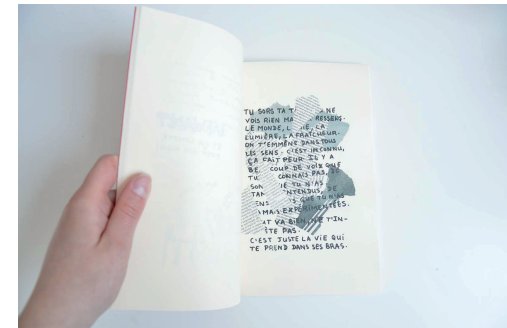 TU SORS TA T NE
VOIS RIEN MA RESSENS.
LE MONDE, L IE, LA
LUMIÈRE, LA FRAÎCHEUR.
ON T'EMMÈNE DANS TOUS
LES SENS. C'EST INCONNU,
ÇA FAIT PEUR. IL Y A
BE COUP DE VOIX QUE
TU CONNAIS PAS, DE
SON IE TU N'AS
TAN NTENDUS, DE
ENS QUE TU N'AS
MAIS EXPÉRIMENTÉES.
T VA BIEN, NE T'IN-
ÈTE PAS.
C'EST JUSTE LA VIE QUI
TE PREND DANS SES BRAS.